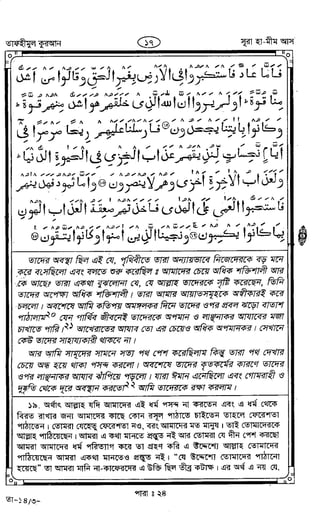 তাফহীমুল কুরআন ১৭ সূরা হা-মীম আস
فَاَمَّا عَادٌ فَاسْتَكْبَرُوْا فِى الْاَرْضِ بِغَيْرِ الْحَقِّ وَقَالُوْا مَنْ اَشَدُّ
مِنَّا قُوَّةً ؕ اَوَلَمْ يَرَوْا اَنَّ اللّٰهَ الَّذِىْ خَلَقَهُمْ هُوَ اَشَدُّ مِنْهُمْ قُوَّةً ؕ
وَكَانُوْا بِاٰيٰتِنَا يَجْحَدُوْنَ ۝ فَاَرْسَلْنَا عَلَيْهِمْ رِيْحًا صَرْصَرًا فِىْٓ
اَيَّامٍ نَّحِسَاتٍ لِّنُذِيْقَهُمْ عَذَابَ الْخِزْىِ فِى الْحَيٰوةِ الدُّنْيَا ؕ
وَلَعَذَابُ الْاٰخِرَةِ اَخْزٰى وَهُمْ لَا يُنْصَرُوْنَ ۝ وَاَمَّا ثَمُوْدُ فَهَدَيْنٰهُمْ
فَاسْتَحَبُّوا الْعَمٰى عَلَى الْهُدٰى فَاَخَذَتْهُمْ صٰعِقَةُ الْعَذَابِ الْهُوْنِ
بِمَا كَانُوْا يَكْسِبُوْنَ ۝ وَنَجَّيْنَا الَّذِيْنَ اٰمَنُوْا وَكَانُوْا يَتَّقُوْنَ ۝
তাদের অবস্থা ছিল এই যে, পৃথিবীতে তারা অন্যায়ভাবে নিজেদেরকে বড় মনে
করে বসেছিলো এবং বলতে শুরু করেছিল ঃ আমাদের চেয়ে অধিক শক্তিশালী আর
কে আছে? তারা একথা বুঝলোনা যে, যে আল্লাহ তাদেরকে সৃষ্টি করেছেন, তিনি
তাদের অপেক্ষা অধিক শক্তিশালী। তারা আমার আয়াতসমূহকে অস্বীকারই করে
চললো। অবশেষে আমি কতিপয় অমঙ্গলকর দিনে তাদের ওপর প্রবল ঝড়ো বাতাস
পাঠালাম২০ যেন পার্থিব জীবনেই তাদেরকে অপমান ও লাঞ্ছনাকর আযাবের মজা
চাখাতে পারি।২১ আখেরাতের আযাব তো এর চেয়েও অধিক অপমানকর। সেখানে
কেউ তাদের সাহায্যকারী থাকবে না।
আর আমি সামূদের সামনে সত্য পথ পেশ করেছিলাম কিন্তু তারা পথ দেখার
চেয়ে অন্ধ হয়ে থাকা পসন্দ করলো। অবশেষে তাদের কৃতকর্মের কারণে তাদের
ওপর লাঞ্ছনাকর আযাব ঝাঁপিয়ে পড়লো। যারা ঈমান এনেছিলো এবং গোমরাহী ও
দুষ্কৃতি থেকে দূরে অবস্থান করতো২২ আমি তাদেরকে রক্ষা করলাম।
১৯. অর্থাৎ আল্লাহ যদি আমাদের এই ধর্ম পসন্দ না করতেন এবং এ ধর্ম থেকে
বিরত রাখার জন্য আমাদের কাছে কোন রসূল পাঠাতে চাইতেন তাহলে ফেরেশতা
পাঠাতেন। তোমরা যেহেতু ফেরেশতা নও, বরং আমাদের মত মানুষ। তাই তোমাদেরকে
আল্লাহ পাঠিয়েছেন। আমরা এ কথা মানতে প্রস্তুত নই আর তোমরা যে দীন পেশ করছো
আমরা আমাদের ধর্ম পরিত্যাগ করে তা গ্রহণ করি এ উদ্দেশ্যে আল্লাহ তোমাদের
পাঠিয়েছেন আমরা একথা মানতেও প্রস্তুত নই। "যে উদ্দেশ্যে তোমাদের পাঠানো
হয়েছে" তা আমরা মানি না-কাফেরদের এ উক্তি ছিল তীব্র কটাক্ষ। এর অর্থ এ নয় যে,
তা-১৪/৩- পারা ঃ ২৪